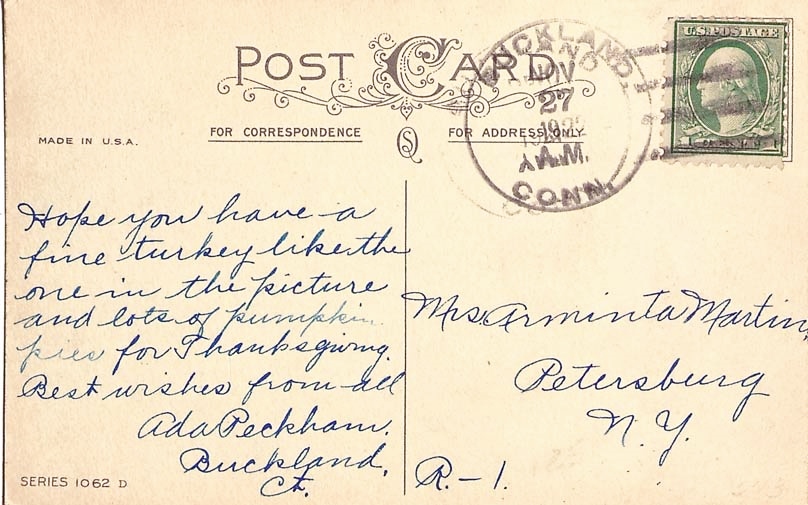 POST CARD.
BUCKLAND.
NOV
27
1922
A.M.
CONN.
U.S. POSTAGE
1 CENT 1
MADE IN U.S.A.
FOR CORRESPONDENCE
FOR ADDRESS ONLY
Hope you have a
fine turkey like the
one in the picture
and lots of pumpkin
pies for Thanksgiving.
Best wishes from all
Ada Peckham.
Buckland,
Ct.
Mrs. Arminta Martin,
Petersburg
N.Y.
R.-1.
SERIES 1062 D